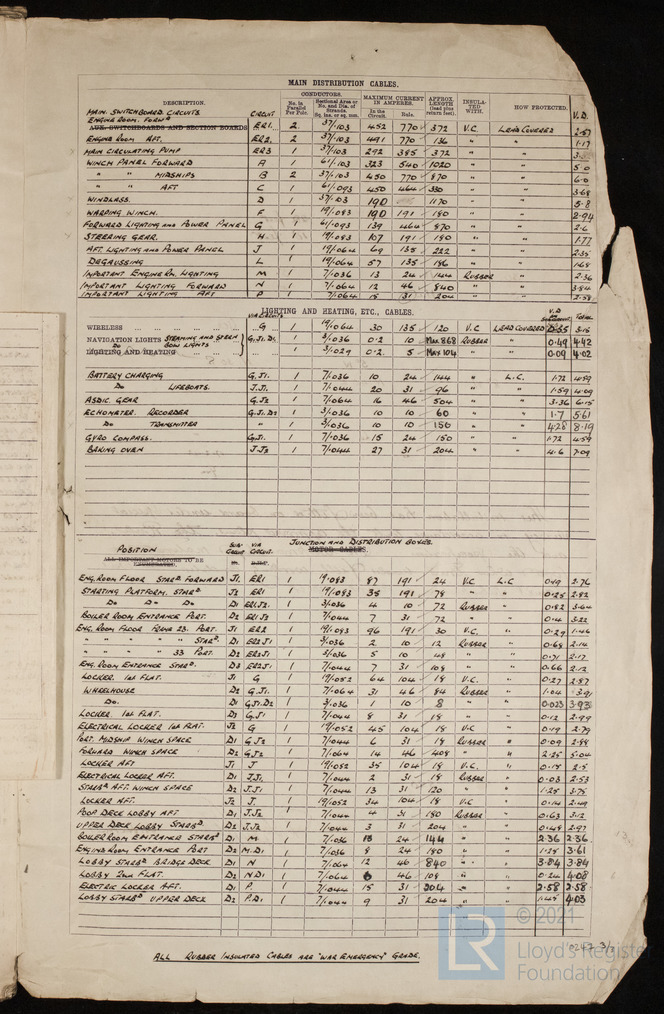 MAIN DISTRIBUTION CABLES.
DESCRIPTION. CIRCUIT CONDUCTORS. No. in Parallel Per Pole. Sectional Area or No. and Dia. of Strands. Sq. ins. or sq. mm. MAXIMUM CURRENT IN AMPERES. In the Circuit. Rule. APPROX. LENGTH (lead plus return feet). INSULATED WITH. HOW PROTECTED. V.D.
MAIN SWITCHBOARD CIRCUITS
AUX. SWITCHBOARDS AND SECTION BOARDS
ENGINE ROOM. FORWD ER1. 2. 37/.103 452 770 372 V.C LEAD COVERED 2.57
ENGINE ROOM AFT. ER2. 2 37/.103 491 770 136 " " 1.17
MAIN CIRCULATING PUMP ER3 1 37/.103 292 385 372 " "
WINCH PANEL FORWARD A 1 61/.103 323 540 1020 " " 5.0
" " MIDSHIPS B 2 37/.103 450 770 870 " " 6.0
" " AFT C 1 61/.093 450 464 330 " " 3.68
WINDLASS. D 1 37/.103 190 1170 " " 5.8
WARPING WINCH. F 1 19/.083 190 191 180 " " 2.94
FORWARD LIGHTING AND POWER PANEL G 1 61/.093 139 464 870 " " 2.6
STEERING GEAR. H 1 19/.083 107 191 180 " " 1.77
AFT. LIGHTING AND POWER PANEL J 1 19/.064 64 135 222 " " 2.35
DEGAUSSING L 1 19/.064 57 135 186 " " 1.68
IMPORTANT ENGINE RM. LIGHTING M 1 7/.036 13 24 144 RUBBER " 2.36
IMPORTANT LIGHTING FORWARD N 1 7/.064 12 46 840 " " 3.84
IMPORTANT LIGHTING AFT P 1 7/.044 15 31 204 " " 2.58
LIGHTING AND HEATING, ETC., CABLES.
VIA CIRCUITS V.D TOTAL
WIRELESS G. 1 19/.064 30 135 120 V.C LEAD COVERED 0.35 3.15
NAVIGATION LIGHTS STEAMING AND STERN G.J1.D1. 1 3/.036 0.2 10 MAX 868 RUBBER " 0.49 4.42
LIGHTING AND HEATING DO BOW LIGHTS 1 3/.029 0.2. 5 MAX 104 " " 0.09 4.02
BATTERY CHARGING G.J1. 1 7/.036 10 24 144 " L.C. 1.72 4.59
DO LIFEBOATS. J.J1. 1 7/.044 20 31 96 " " 1.59 4.09
ASDIC GEAR G.J2 1 7/.064 16 46 504 " " 3.36 6.15
ECHOMETER RECORDER G.J1.D2 1 3/.036 10 10 60 " " 1.7 5.61
DO TRANSMITTER " 1 3/.036 10 10 150 " " 4.28 8.19
GYRO COMPASS. G.J1. 1 7/.036 15 24 150 " " 1.72 4.59
BAKING OVEN J.J2 1 7/.044 27 31 204 " " 4.6 7.09
POSITION SUB-CIRCUIT VIA CIRCUIT. JUNCTION AND DISTRIBUTION BOXES.
MOTOR CABLES.
ALL IMPORTANT MOTORS TO BE ENUMERATED.
ENG. ROOM FLOOR STARD FORWARD J1. ER1 1 19/.083 87 191 24 V.C L.C 0.19 2.76
STARTING PLATFORM. STARD J2 ER1 1 19/.083 35 191 78 " " 0.25 2.82
DO DO DO D1 ER1.J2. 1 3/.036 4 10 72 RUBBER " 0.82 3.64
BOILER ROOM ENTRANCE PORT. D2 ER1.J2 1 7/.044 7 31 72 " " 0.4 3.22
ENG. ROOM FLOOR FRAME 23. PORT. J1 ER2 1 19/.083 96 191 30 V.C. " 0.29 1.46
" " " " " STARD D1 ER2J1 1 3/.036 2 10 12 RUBBER " 0.68 2.14
" " " " 33 PORT. D2 ER2J1 1 3/.036 5 10 48 " " 0.71 2.17
ENG. ROOM ENTRANCE STARD. D3 ER2J1 1 7/.044 7 31 108 " " 0.66 2.12
LOCKER. 1st FLAT. J1 G 1 19/.052 64 104 18 V.C. " 0.27 2.87
WHEELHOUSE D2 G.J1. 1 7/.064 31 46 84 RUBBER " 1.04 3.91
DO. D1 G.J1.D2 1 3/.036 1 10 8 " " 0.023 3.93
LOCKER. 1st FLAT. D3 G.J1 1 7/.044 8 31 18 " " 0.12 2.99
ELECTRICAL LOCKER 1st FLAT. J2 G 1 19/.052 45 104 18 V.C " 0.19 2.79
PORT. MIDSHIP WINCH SPACE D1 G.J2 1 7/.044 6 31 18 RUBBER " 0.09 2.88
FORWARD WINCH SPACE D2 G.J2 1 7/.064 14 46 408 " " 2.25 5.04
LOCKER AFT J1 J 1 19/.052 35 104 18 V.C. " 0.15 2.5
ELECTRICAL LOCKER AFT. D1 J.J1. 1 7/.044 2 31 18 RUBBER " 0.03 2.53
STARBD AFT. WINCH SPACE D2 J.J1 1 7/.044 13 31 120 " " 1.25 3.75
LOCKER AFT. J2 J. 1 19/.052 34 104 18 V.C " 0.14 2.49
POOP DECK LOBBY AFT D1 J.J2 1 7/.044 4 31 180 RUBBER " 0.63 3.12
UPPER DECK LOBBY STARBD. D2 J.J2 1 7/.044 3 31 204 " " 0.48 2.97
BOILER ROOM ENTRANCE STARBD D1 M. 1 7/.036 13 24 144 " " 2.36 2.36
ENGINE ROOM ENTRANCE PORT D2 M.D1 1 7/.036 8 24 180 " " 1.25 3.61
LOBBY STARBD BRIDGE DECK D1 N 1 7/.064 12 46 840 " " 3.84 3.84
LOBBY 2nd FLAT. D2 N.D1 1 7/.064 6 46 108 " " 0.24 4.08
ELECTRIC LOCKER AFT. D1 P. 1 7/.044 15 31 204 " " 2.58 2.58
LOBBY STARBD UPPER DECK D2 P.D1 1 7/.044 9 31 204 " " 1.45 4.03
ALL RUBBER INSULATED CABLES ARE "WAR EMERGENCY" GRADE.
© 2021
LR Lloyd's Register
Foundation